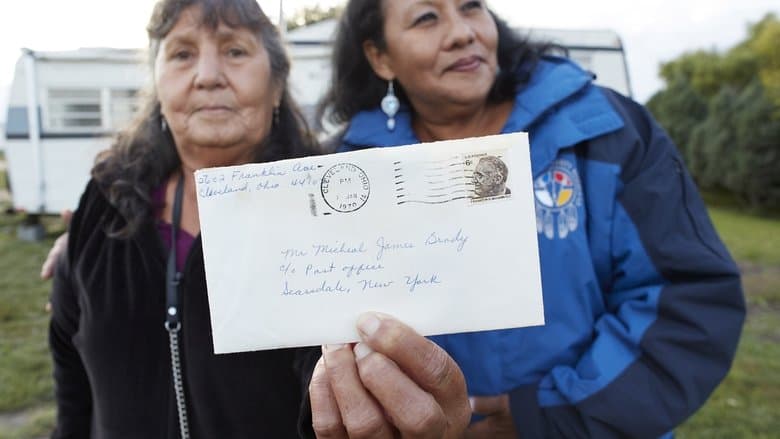 2622 Franklin Ave
Cleveland, Ohio
CLEVELAND, OHIO
PM
JAN
1970
6¢
Mr Micheal James Brody
c/o Post office
Scarsdale, New York